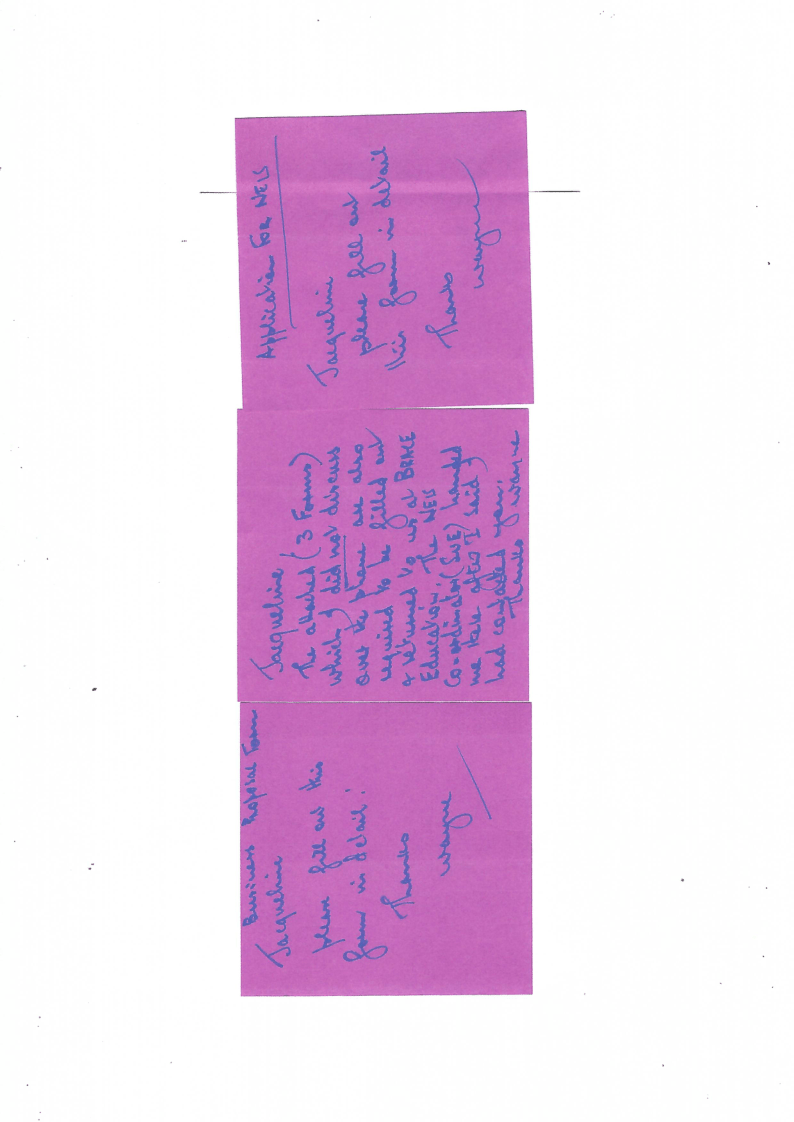 Business Proposal Form
Jacqueline
please fill out this
form in detail!
Thanks
Wayne
Jacqueline
The attached (3 Forms)
which I did not discuss
over the phone are also
required to be filled out
& returned to us at BRACE
Education. The NEIS
Co-ordinator (SUE) handed
me these after I said I
had contacted you.
Thanks Wayne
Application For NEIS
Jacqueline
please fill out
this form in detail
Thanks
Wayne